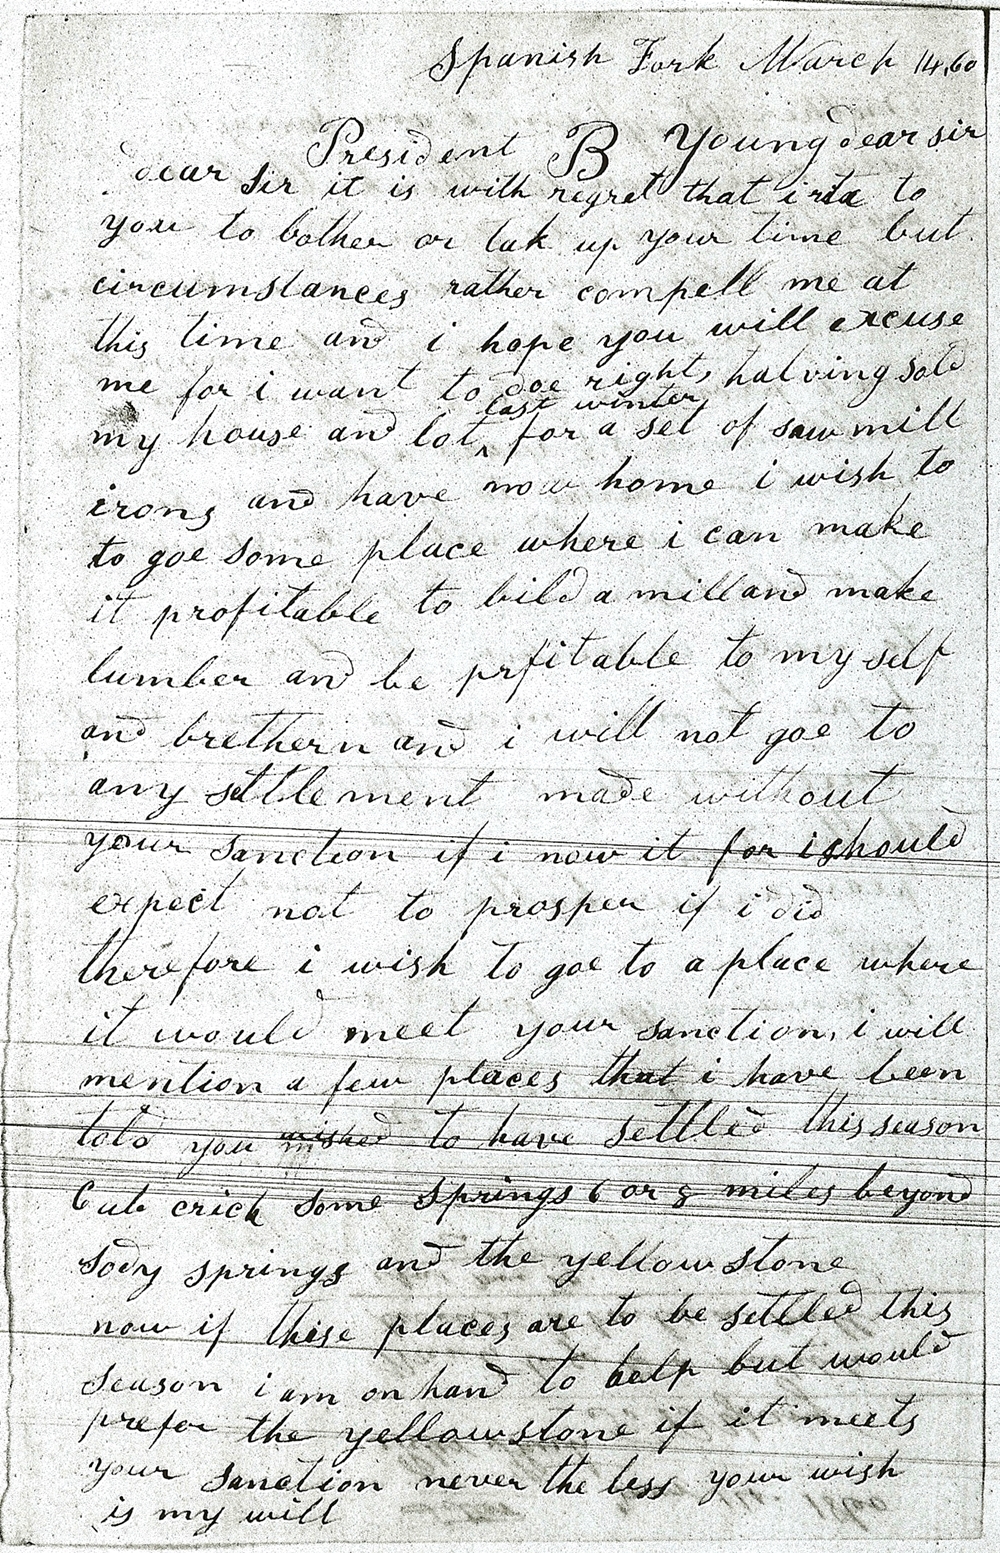 Spanish Fork March 14,60
President B Young dear sir
dear sir it is with regret that i rite to
you to bother or tak up your time but
circumstances rather compell me at
this time and i hope you will excuse
me for i want to doe right, halving sold
last winter
my house and lot, for a set of saw mill
irons and have now home i wish to
to goe some place where i can make
it profitable to bild a mill and make
lumber and be prfitable to my self
and brethern and i will not goe to
any settlement made without
your sanction if i now it for i should
expect not to prosper if i did
therefore i wish to goe to a place where
it would meet your sanction, i will
mention a few places that i have been
told you wished to have settled this season
Cub crick some springs 6 or 8 miles beyond
sody springs and the yellowstone
now if these places are to be settled this
season i am on hand to help but would
prefer the yellowstone if it meets
your sanction never the less your wish
is my will